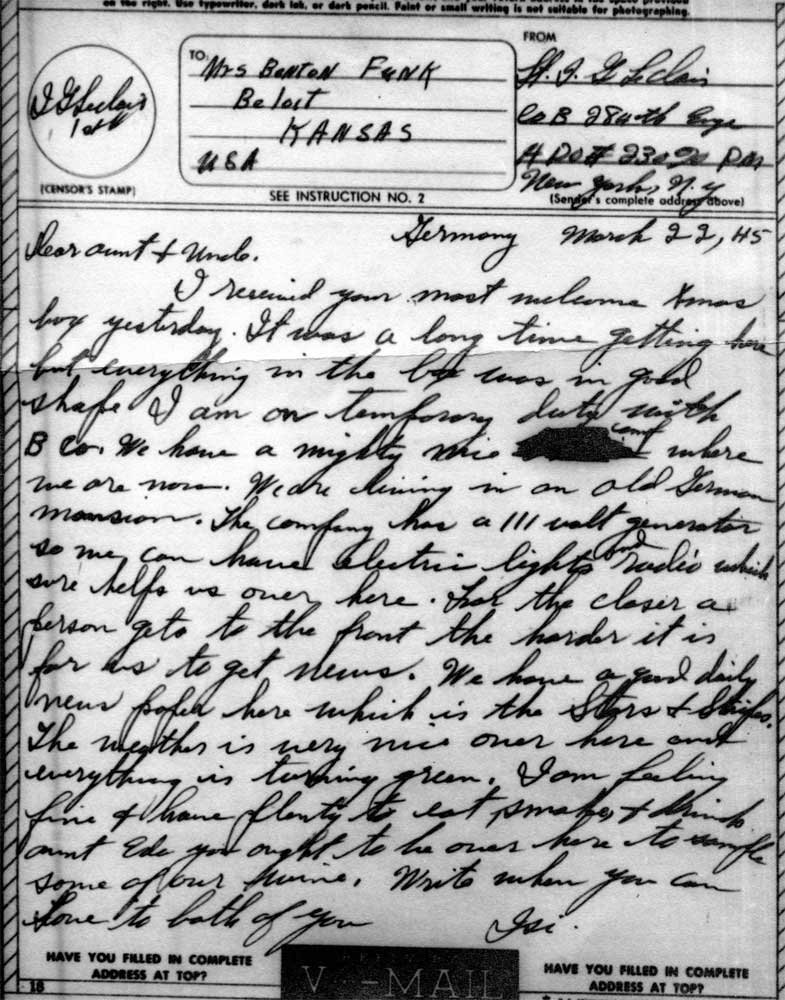 on the right. Use typewriter, dark ink, or dark pencil. Faint or small writing is not suitable for photographing.
TO:
Mrs Benton Funk
Beloit
KANSAS
USA
(CENSOR'S STAMP)
SEE INSTRUCTION NO. 2
FROM
Lt. I. G. Leclair
Co B 284th Engr
A PO # 230 % PM
New York, N.Y
(Sender's complete address above)
I G Leclair
1st Lt
Germany March 22, 45
Dear aunt & Uncle.
I received your most welcome Xmas
box yesterday. It was a long time getting here
but everything in the box was in good
shape I am on temporary duty with
B Co. We have a mighty nice camp where
we are now. We are living in an old German
mansion. The company has a 111 volt generator
so we can have electric lights and radio which
sure helps us over here. For the closer a
person gets to the front the harder it is
for us to get news. We have a good daily
news paper here which is the Stars & Stripes.
The weather is very nice over here and
everything is turning green. I am feeling
fine & have plenty to eat, smoke, & drink
aunt Eda you ought to be over here to sample
some of our wine. Write when you can
Love to both of you Isi.
HAVE YOU FILLED IN COMPLETE
ADDRESS AT TOP?
V - MAIL
HAVE YOU FILLED IN COMPLETE
ADDRESS AT TOP?
18